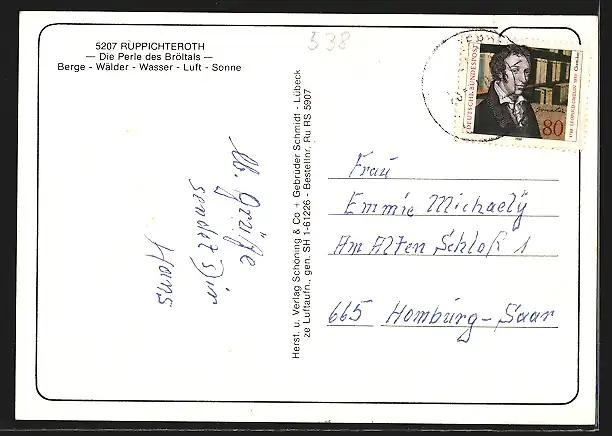 5207 RUPPICHTEROTH
— Die Perle des Bröltals —
Berge - Wälder - Wasser - Luft - Sonne
538
lb. Grüße
sendet Dir
Hans
Herst. u. Verlag Schöning & Co + Gebrüder Schmidt - Lübeck
ze Luftaufn., gen. SH 1-61226 - Bestellnr. Ru RS 5907
DEUTSCHE BUNDESPOST
80
Frau
Emmie Michaely
Am Alten Schloß 1
665 Homburg-Saar